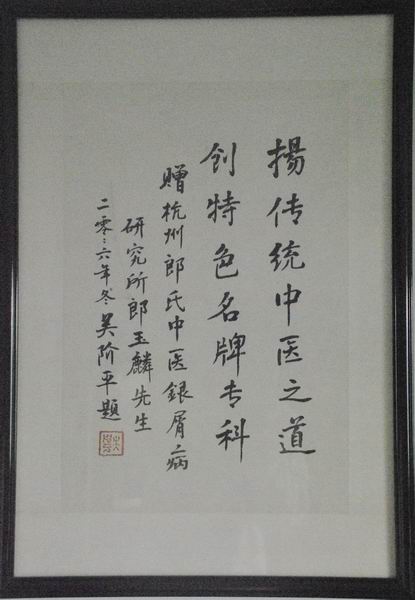 揚传统中医之道
创特色名牌专科
赠杭州郎氏中医銀屑病
研究所郎玉麟先生
二零零六年冬吴阶平题